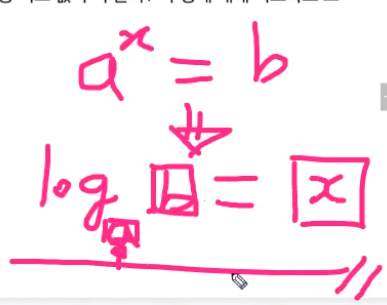 a^x = b
⇓
log_a b = x